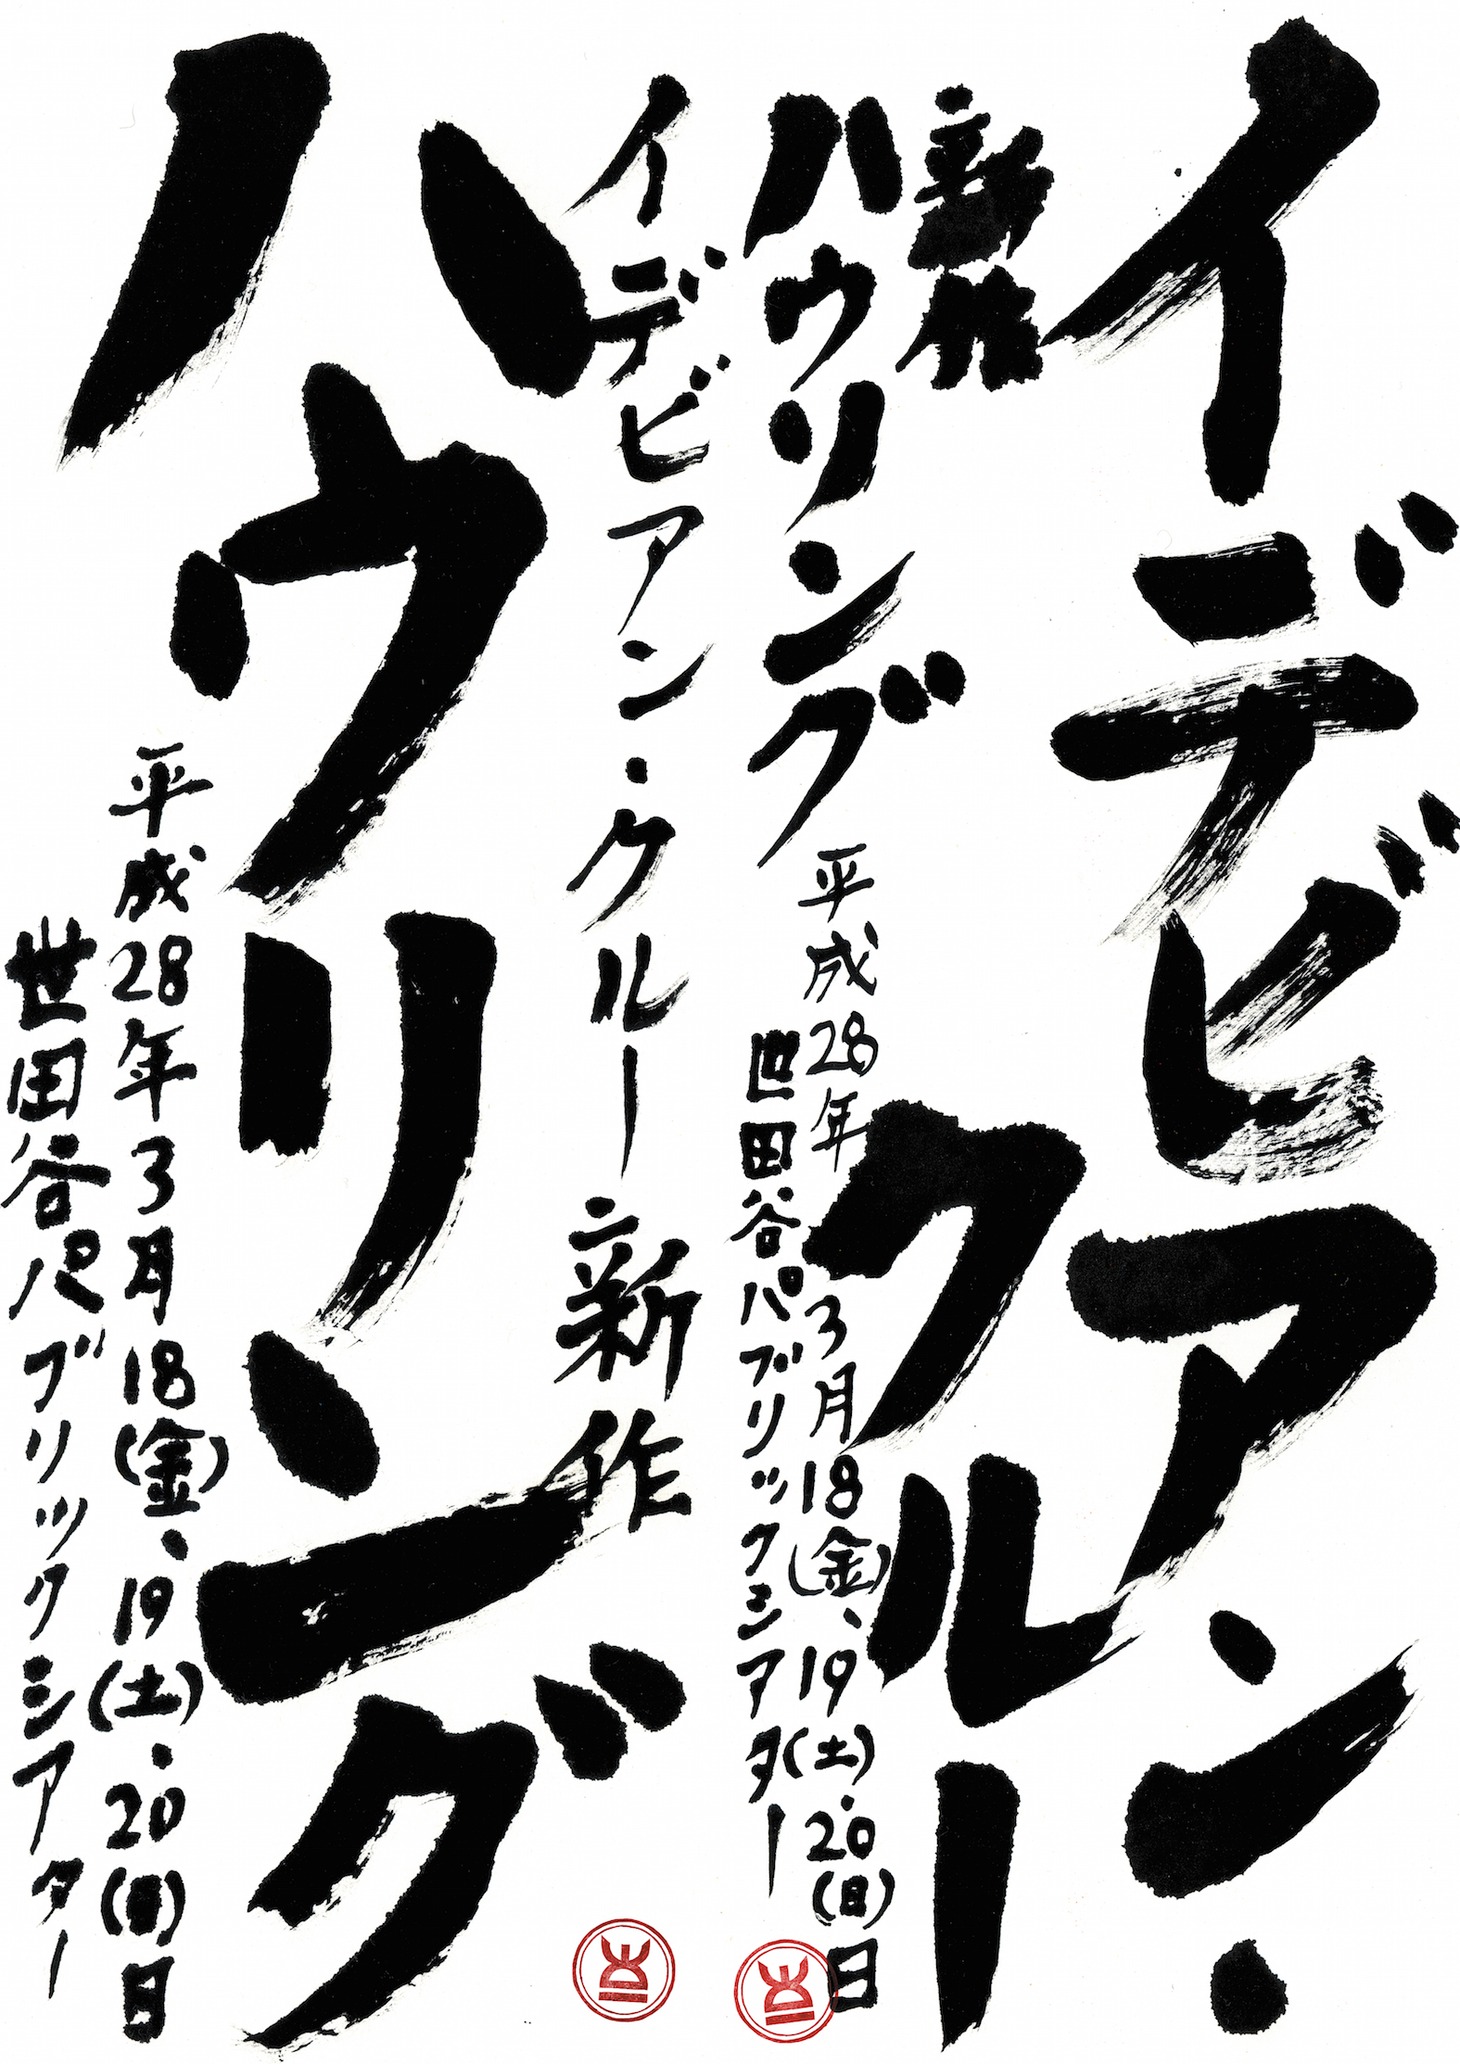 イデビアン・
クルー
新作
ハウリング
平成28年3月18(金)、19(土)、20(日)日
世田谷パブリックシアター
イデビアン・クルー 新作
ハウリング
平成28年3月18(金)、19(土)、20(日)日
世田谷パブリックシアター